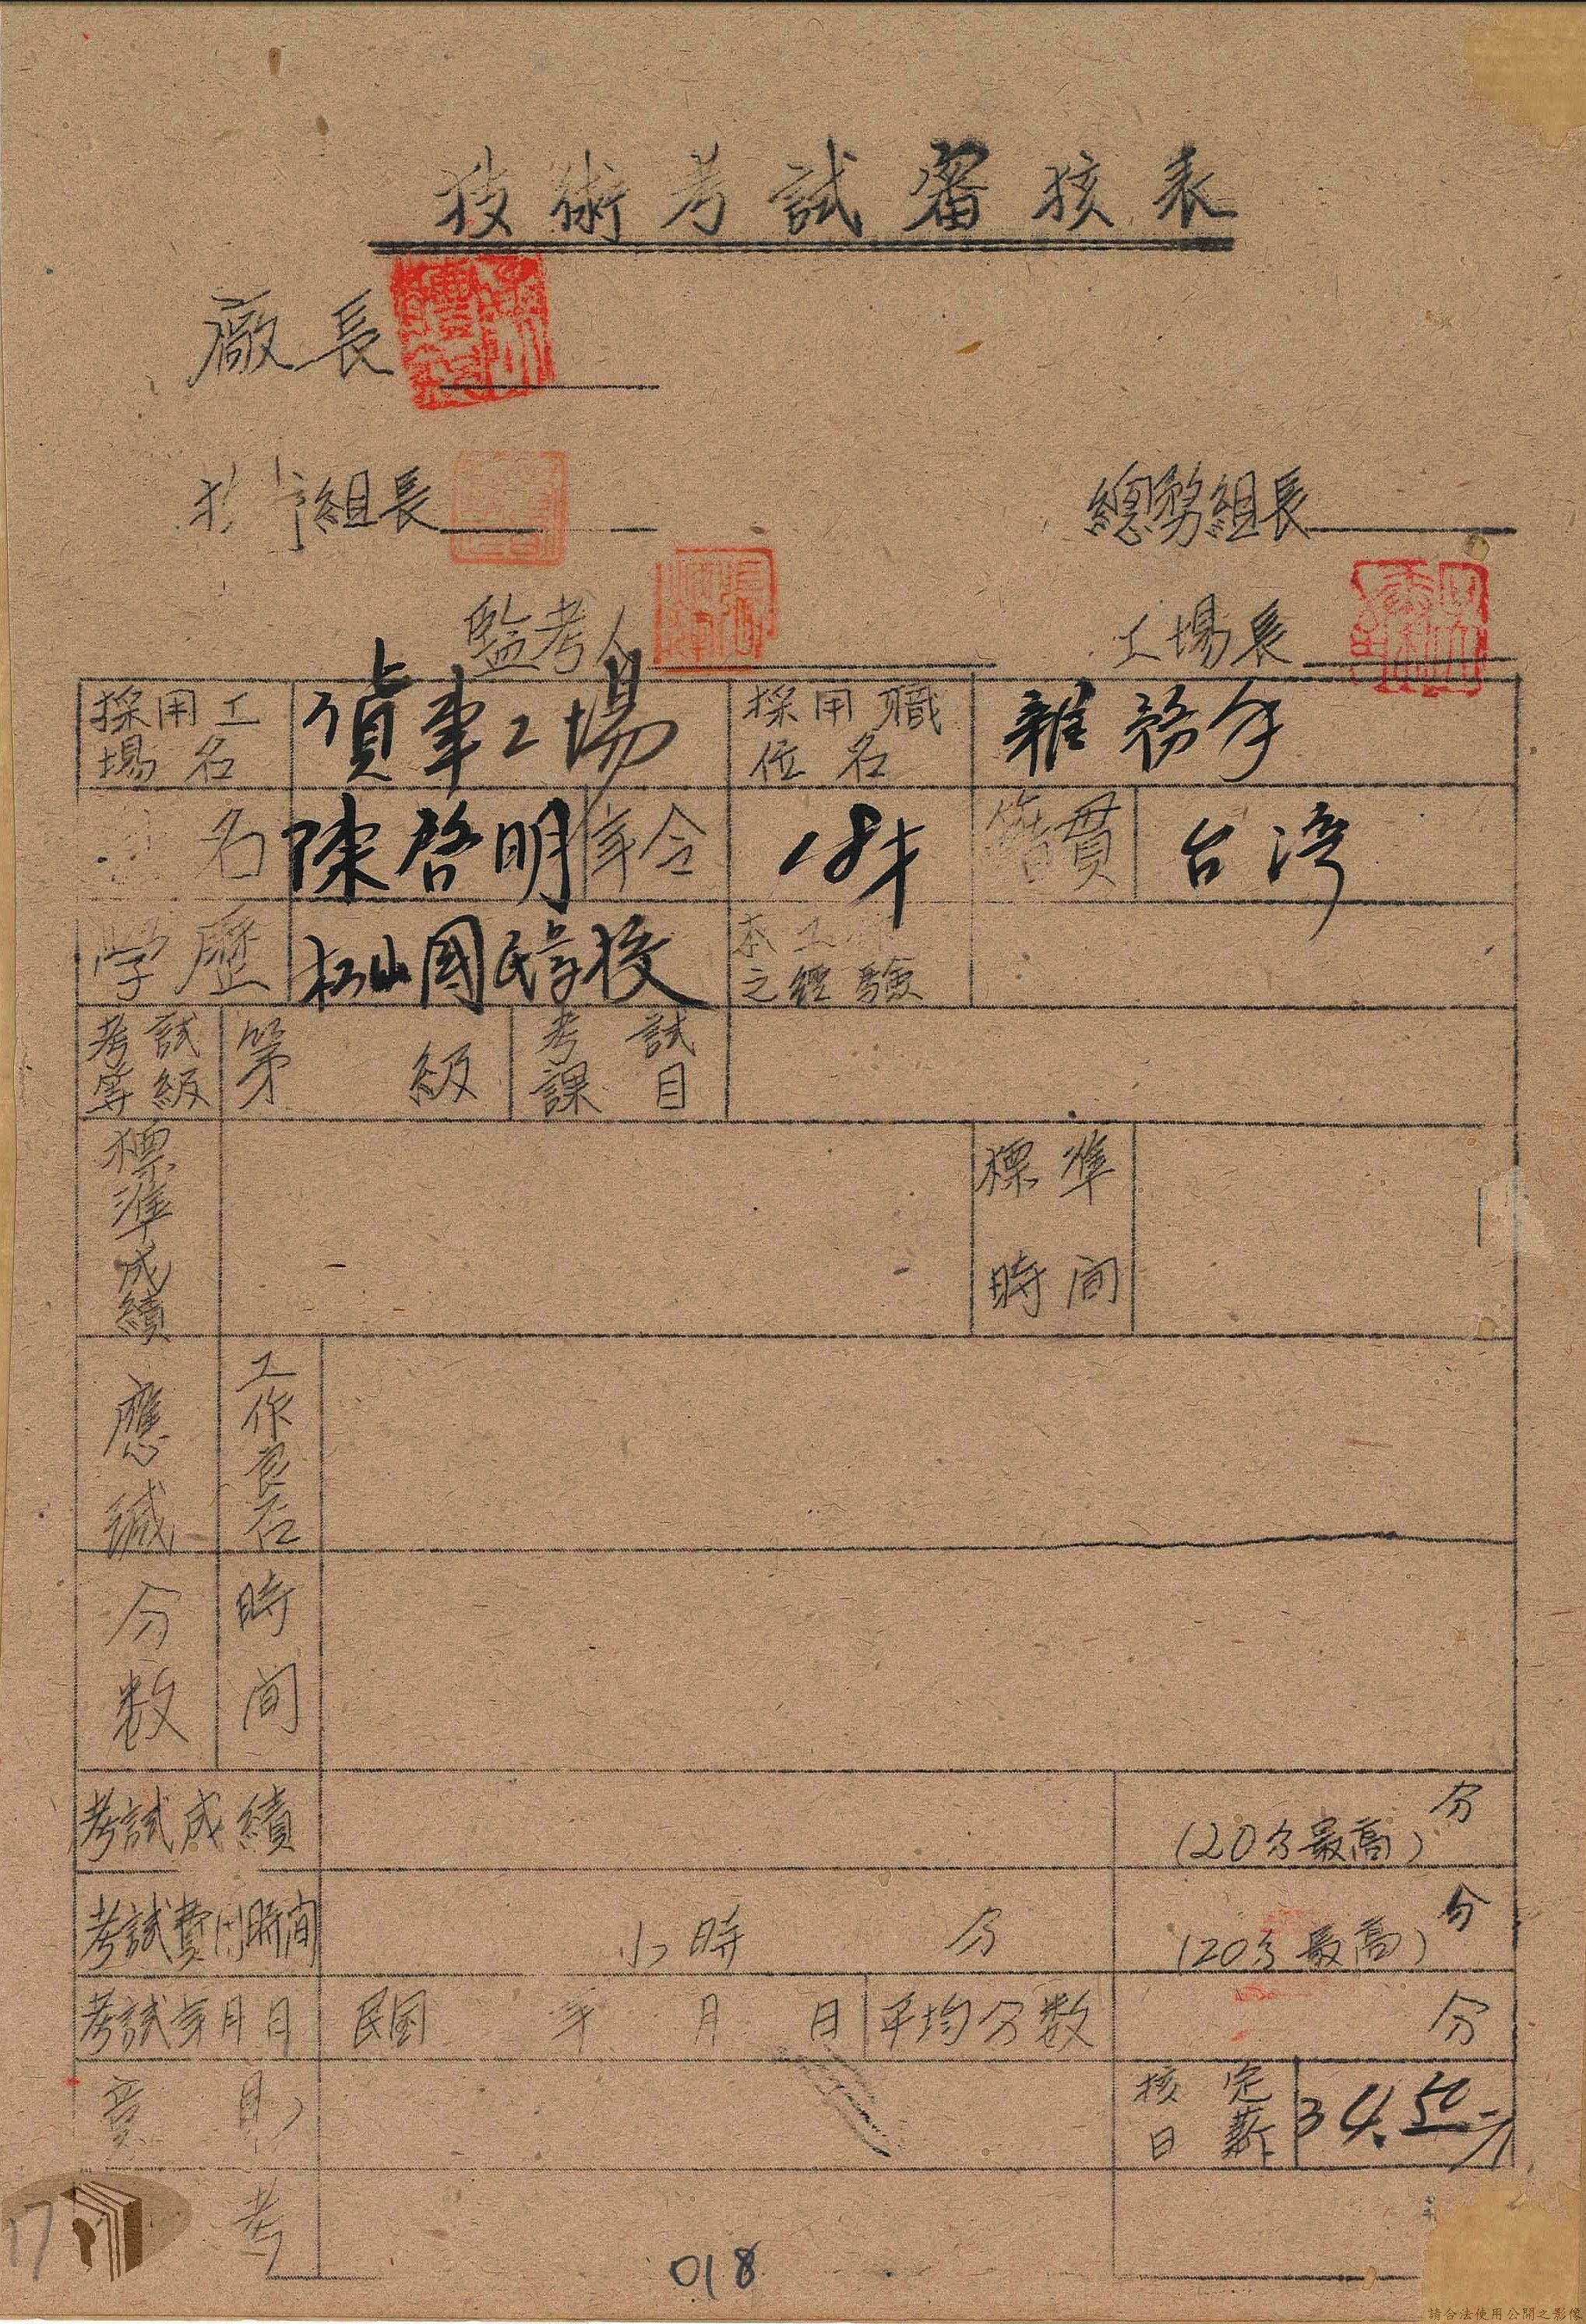 技術考試審核表
廠長
組長 總務組長
監考人 工場長
採用工場名 貨車工場 採用職位名 雜務手
名 陳啓明 年令 18才 籍貫 台湾
学歷 松山國民学校 本工作之經驗
考試等級 第 級 考試課目
標準成績 標準時间
應減分数 工作良否
時间
考試成績 分(20分最高)
考試費用時间 小時 分 分(20分最高)
考試年月日 民国 年 月 日 平均分数 分
意見 核定日薪 34.50元
考
018
17
請合法使用公開之影像